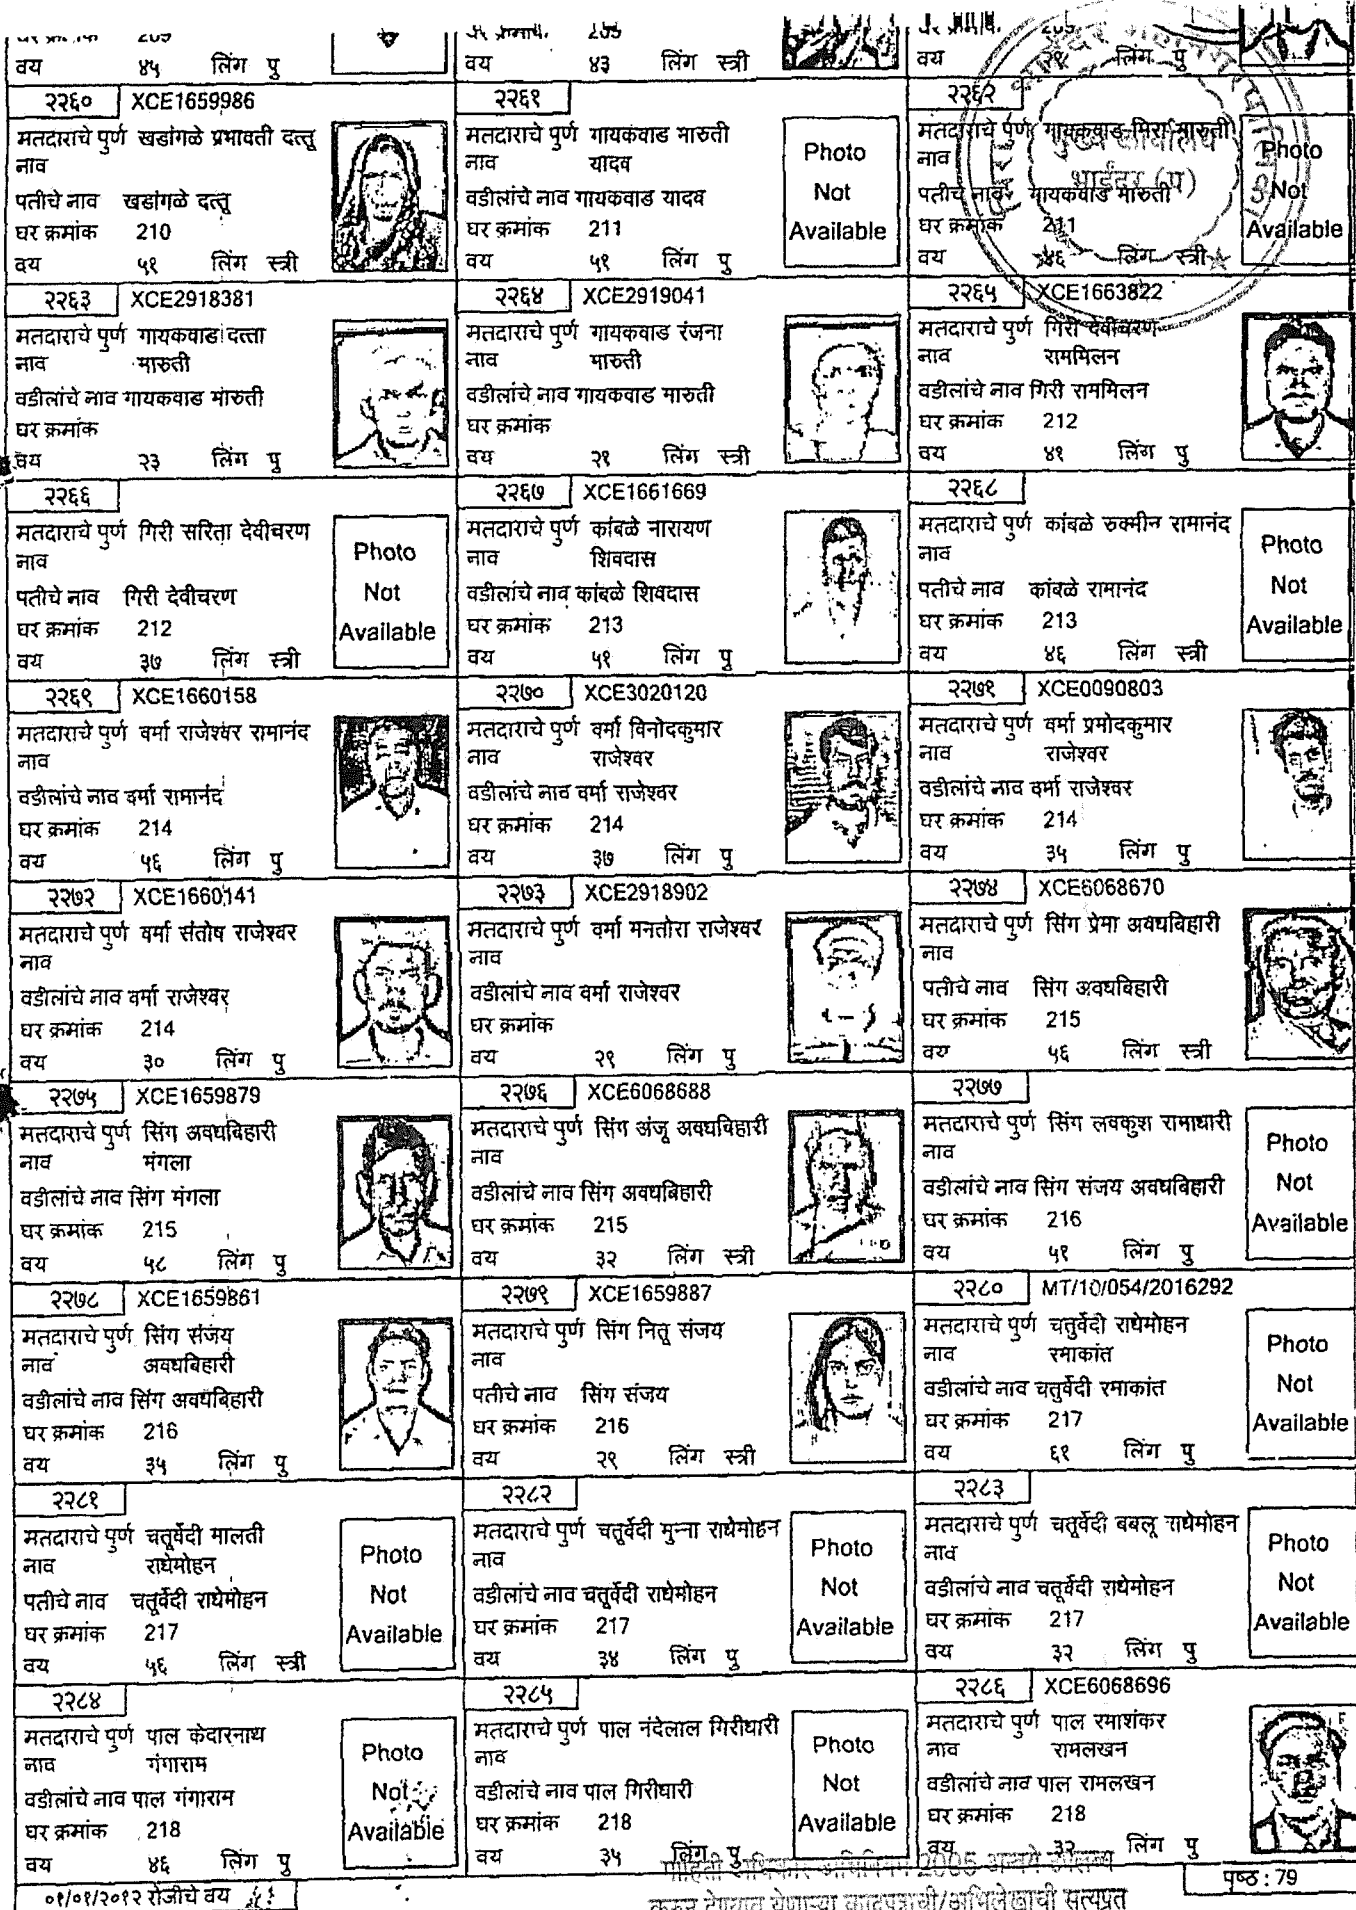 वय ४५ लिंग पु
वय ४३ लिंग स्त्री
वय २९ लिंग पु
२२६० XCE1659986
मतदाराचे पुर्ण खडांगळे प्रभावती दत्तू
नाव
पतीचे नाव खडांगळे दत्तू
घर क्रमांक 210
वय ५१ लिंग स्त्री
२२६१
मतदाराचे पुर्ण गायकवाड मारुती
नाव यादव
वडीलांचे नाव गायकवाड यादव
घर क्रमांक 211
वय ५१ लिंग पु
Photo
Not
Available
२२६२
मतदाराचे पुर्ण गायकवाड मिरा मारुती
नाव
पतीचे नाव गायकवाड मारुती
घर क्रमांक 211
वय ४६ लिंग स्त्री
Photo
Not
Available
मुख्य कार्यालय
भाईंदर (प)
२२६३ XCE2918381
मतदाराचे पुर्ण गायकवाड दत्ता
नाव मारुती
वडीलांचे नाव गायकवाड मारुती
घर क्रमांक
वय २३ लिंग पु
२२६४ XCE2919041
मतदाराचे पुर्ण गायकवाड रंजना
नाव मारुती
वडीलांचे नाव गायकवाड मारुती
घर क्रमांक
वय २१ लिंग स्त्री
२२६५ XCE1663822
मतदाराचे पुर्ण गिरी देवीचरण
नाव राममिलन
वडीलांचे नाव गिरी राममिलन
घर क्रमांक 212
वय ४१ लिंग पु
२२६६
मतदाराचे पुर्ण गिरी सरिता देवीचरण
नाव
पतीचे नाव गिरी देवीचरण
घर क्रमांक 212
वय ३७ लिंग स्त्री
Photo
Not
Available
२२६७ XCE1661669
मतदाराचे पुर्ण कांबळे नारायण
नाव शिवदास
वडीलांचे नाव कांबळे शिवदास
घर क्रमांक 213
वय ५१ लिंग पु
२२६८
मतदाराचे पुर्ण कांबळे रुक्मीन रामानंद
नाव
पतीचे नाव कांबळे रामानंद
घर क्रमांक 213
वय ४६ लिंग स्त्री
Photo
Not
Available
२२६९ XCE1660158
मतदाराचे पुर्ण वर्मा राजेश्वर रामानंद
नाव
वडीलांचे नाव वर्मा रामानंद
घर क्रमांक 214
वय ५६ लिंग पु
२२७० XCE3020120
मतदाराचे पुर्ण वर्मा विनोदकुमार
नाव राजेश्वर
वडीलांचे नाव वर्मा राजेश्वर
घर क्रमांक 214
वय ३७ लिंग पु
२२७१ XCE0090803
मतदाराचे पुर्ण वर्मा प्रमोदकुमार
नाव राजेश्वर
वडीलांचे नाव वर्मा राजेश्वर
घर क्रमांक 214
वय ३५ लिंग पु
२२७२ XCE1660141
मतदाराचे पुर्ण वर्मा संतोष राजेश्वर
नाव
वडीलांचे नाव वर्मा राजेश्वर
घर क्रमांक 214
वय ३० लिंग पु
२२७३ XCE2918902
मतदाराचे पुर्ण वर्मा मनतोरा राजेश्वर
नाव
वडीलांचे नाव वर्मा राजेश्वर
घर क्रमांक
वय २९ लिंग पु
२२७४ XCE6068670
मतदाराचे पुर्ण सिंग प्रेमा अवधबिहारी
नाव
पतीचे नाव सिंग अवधबिहारी
घर क्रमांक 215
वय ५६ लिंग स्त्री
२२७५ XCE1659879
मतदाराचे पुर्ण सिंग अवधबिहारी
नाव मंगला
वडीलांचे नाव सिंग मंगला
घर क्रमांक 215
वय ५८ लिंग पु
२२७६ XCE6068688
मतदाराचे पुर्ण सिंग अंजू अवधबिहारी
नाव
वडीलांचे नाव सिंग अवधबिहारी
घर क्रमांक 215
वय ३२ लिंग स्त्री
२२७७
मतदाराचे पुर्ण सिंग लवकुश रामाधारी
नाव
वडीलांचे नाव सिंग संजय अवधबिहारी
घर क्रमांक 216
वय ५१ लिंग पु
Photo
Not
Available
२२७८ XCE1659861
मतदाराचे पुर्ण सिंग संजय
नाव अवधबिहारी
वडीलांचे नाव सिंग अवधबिहारी
घर क्रमांक 216
वय ३५ लिंग पु
२२७९ XCE1659887
मतदाराचे पुर्ण सिंग नितू संजय
नाव
पतीचे नाव सिंग संजय
घर क्रमांक 216
वय २९ लिंग स्त्री
२२८० MT/10/054/2016292
मतदाराचे पुर्ण चतुर्वेदी राधेमोहन
नाव रमाकांत
वडीलांचे नाव चतुर्वेदी रमाकांत
घर क्रमांक 217
वय ६१ लिंग पु
Photo
Not
Available
२२८१
मतदाराचे पुर्ण चतूर्वेदी मालती
नाव राधेमोहन
पतीचे नाव चतूर्वेदी राधेमोहन
घर क्रमांक 217
वय ५६ लिंग स्त्री
Photo
Not
Available
२२८२
मतदाराचे पुर्ण चतूर्वेदी मुन्ना राधेमोहन
नाव
वडीलांचे नाव चतूर्वेदी राधेमोहन
घर क्रमांक 217
वय ३४ लिंग पु
Photo
Not
Available
२२८३
मतदाराचे पुर्ण चतूर्वेदी बबलू राधेमोहन
नाव
वडीलांचे नाव चतूर्वेदी राधेमोहन
घर क्रमांक 217
वय ३२ लिंग पु
Photo
Not
Available
२२८४
मतदाराचे पुर्ण पाल केदारनाथ
नाव गंगाराम
वडीलांचे नाव पाल गंगाराम
घर क्रमांक 218
वय ४६ लिंग पु
Photo
Not
Available
२२८५
मतदाराचे पुर्ण पाल नंदेलाल गिरीधारी
नाव
वडीलांचे नाव पाल गिरीधारी
घर क्रमांक 218
वय ३५ लिंग पु
Photo
Not
Available
२२८६ XCE6068696
मतदाराचे पुर्ण पाल रमाशंकर
नाव रामलखन
वडीलांचे नाव पाल रामलखन
घर क्रमांक 218
वय ३२ लिंग पु
माहिती अधिकार अधिनियम 2005 अन्वये उपलब्ध
करुन देण्यात येणाऱ्या कादपत्राची/अभिलेखाची सत्यप्रत
०१/०१/२०१२ रोजीचे वय
पृष्ठ : 79